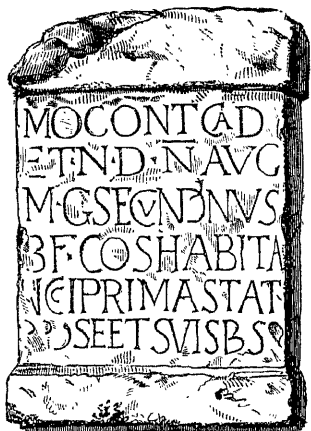 MOCONT CAD
ET·N·D·N̄ AVG
M·G·SECVNDINVS
BF·COS HABITA
NCI PRIMA STAT·
PRO SE ET SVIS